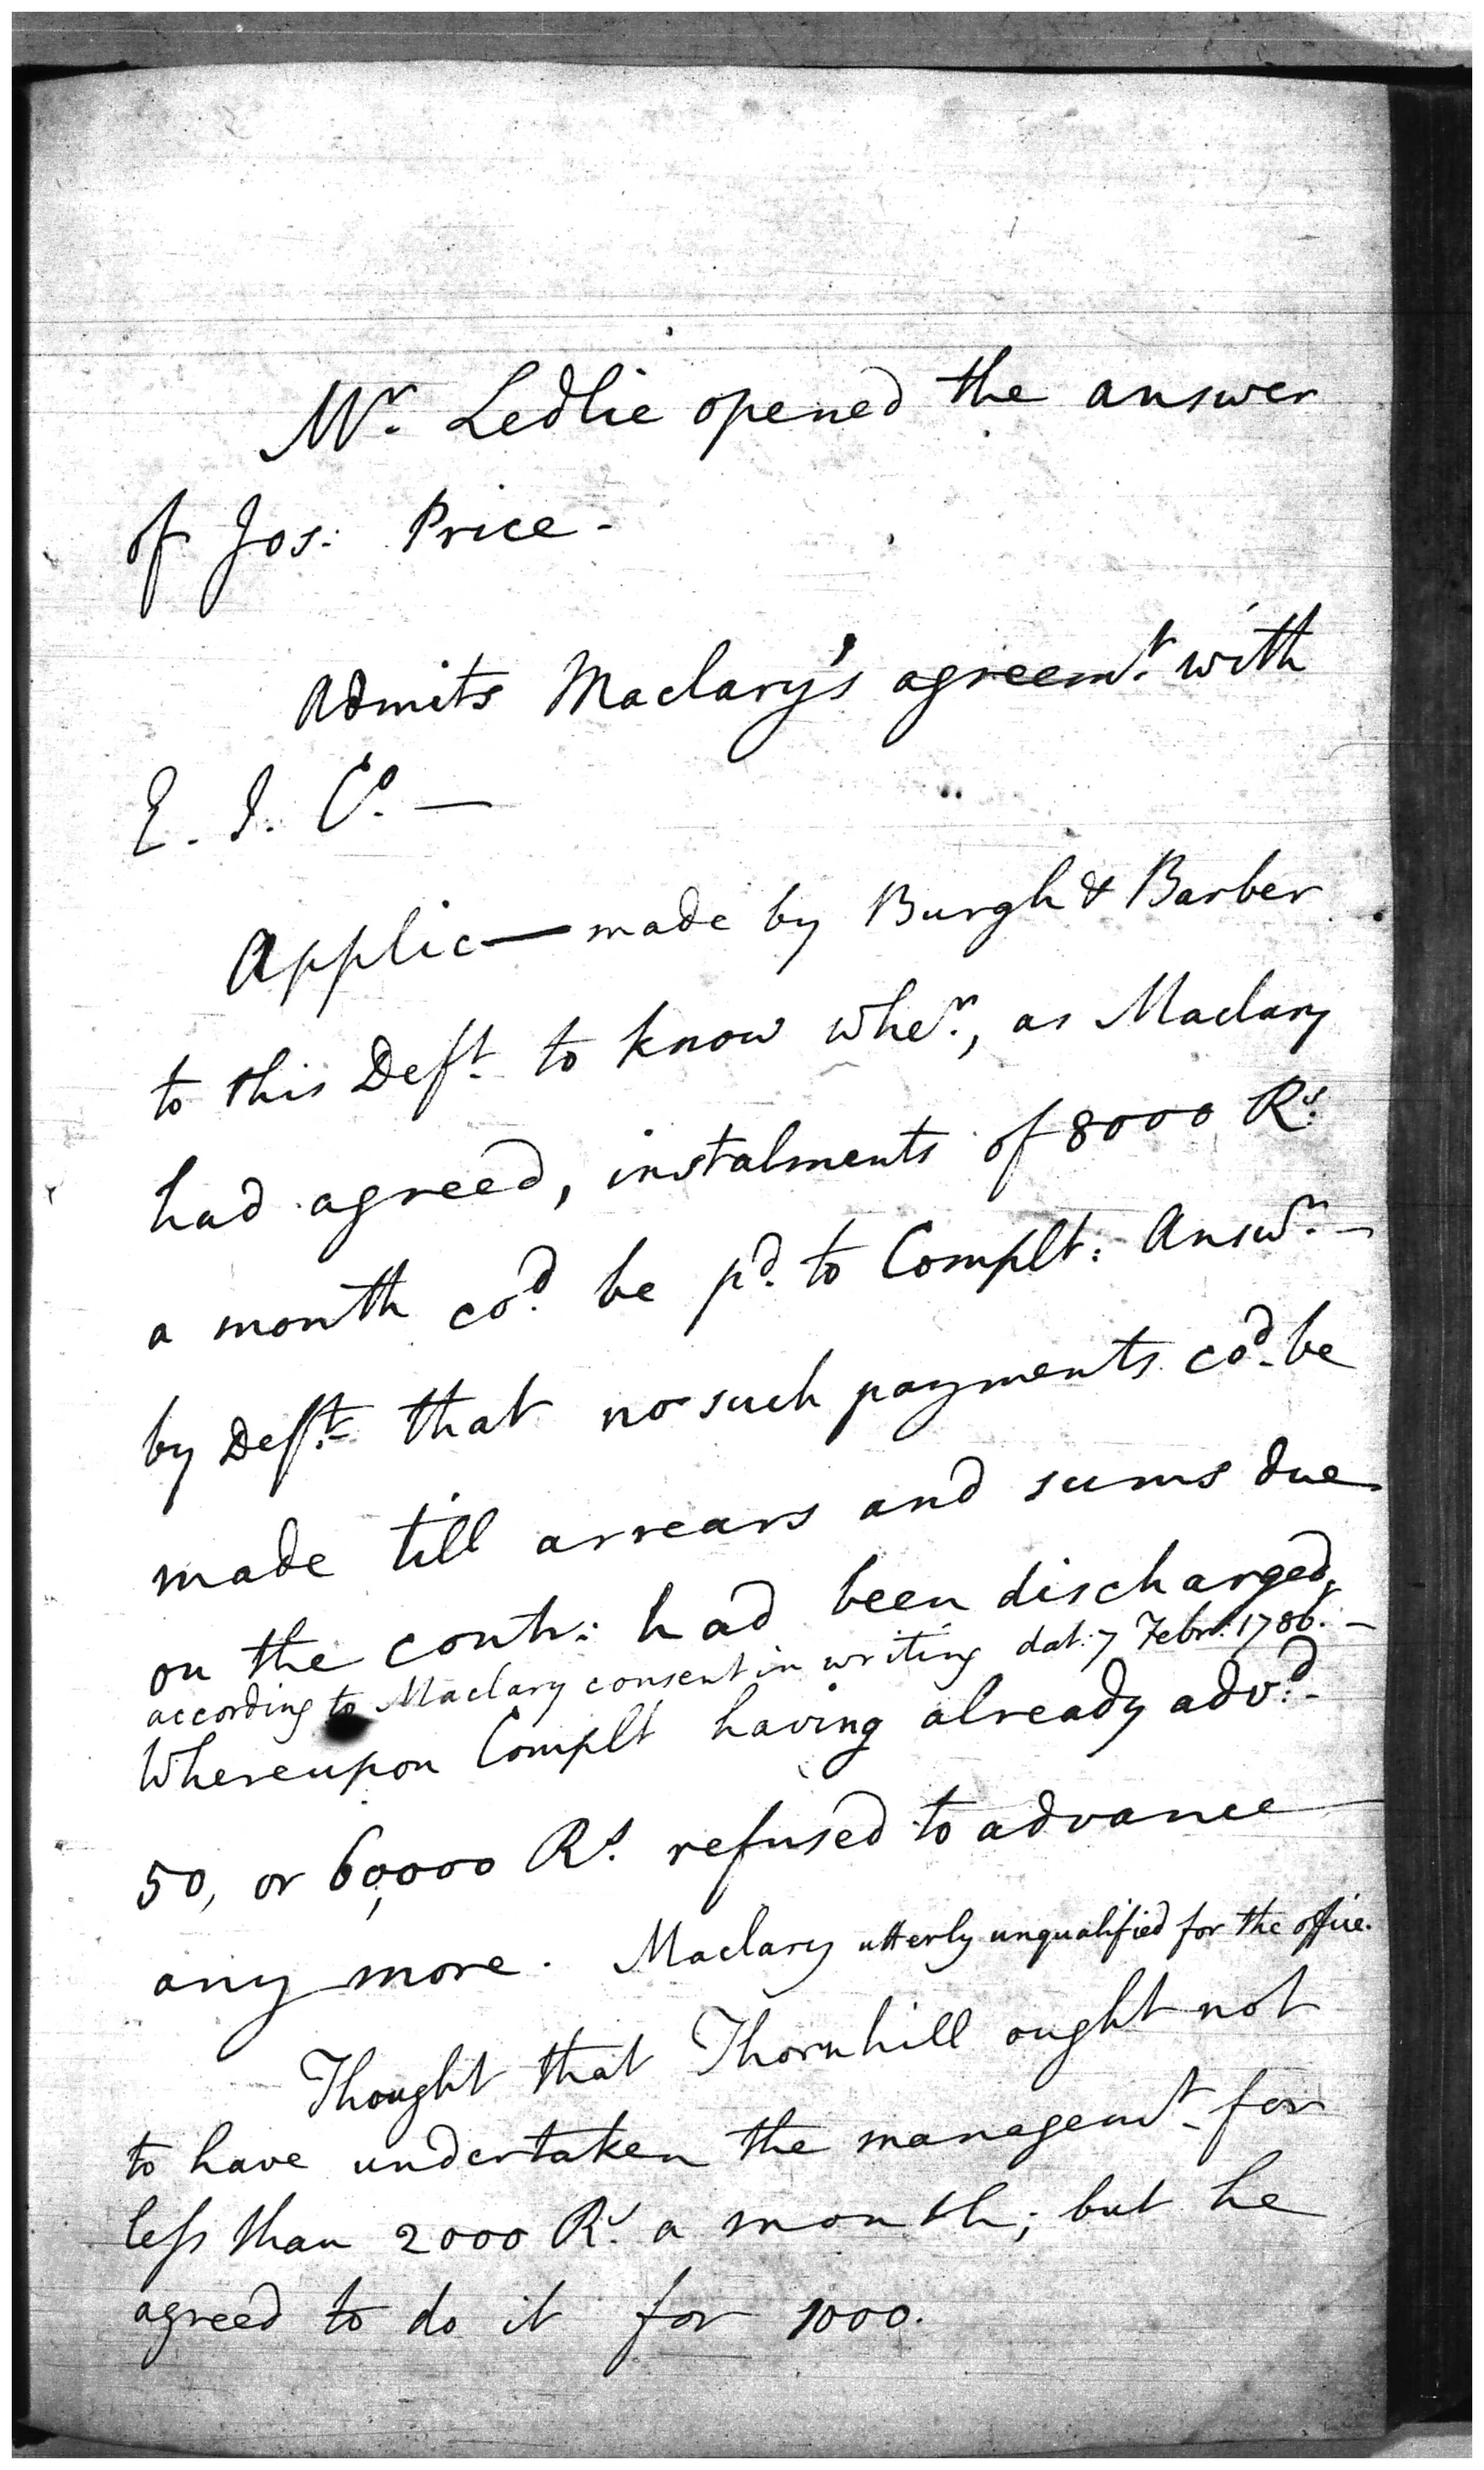 Mr. Ledlie opened the answer
of Jos: Price -
Admits Maclary's agreemt. with
E. I. Co. —
Applic— made by Burgh & Barber
to this Deft. to know wher., as Maclary
had agreed, instalments of 8000 Rs.
a month cod. be pd. to Complt: Answr. -
by Deft. that no such payments cod. be
made till arrears and sums due
on the contr: had been discharged,
according to Maclary consent in writing dat: 7 Febr: 1786. -
Whereupon Complt having already advd. -
50, or 60,000 Rs. refused to advance
any more. Maclary utterly unqualified for the office.
Thought that Thornhill ought not
to have undertaken the managemt. for
less than 2000 Rs. a month; but he
agreed to do it for 1000.